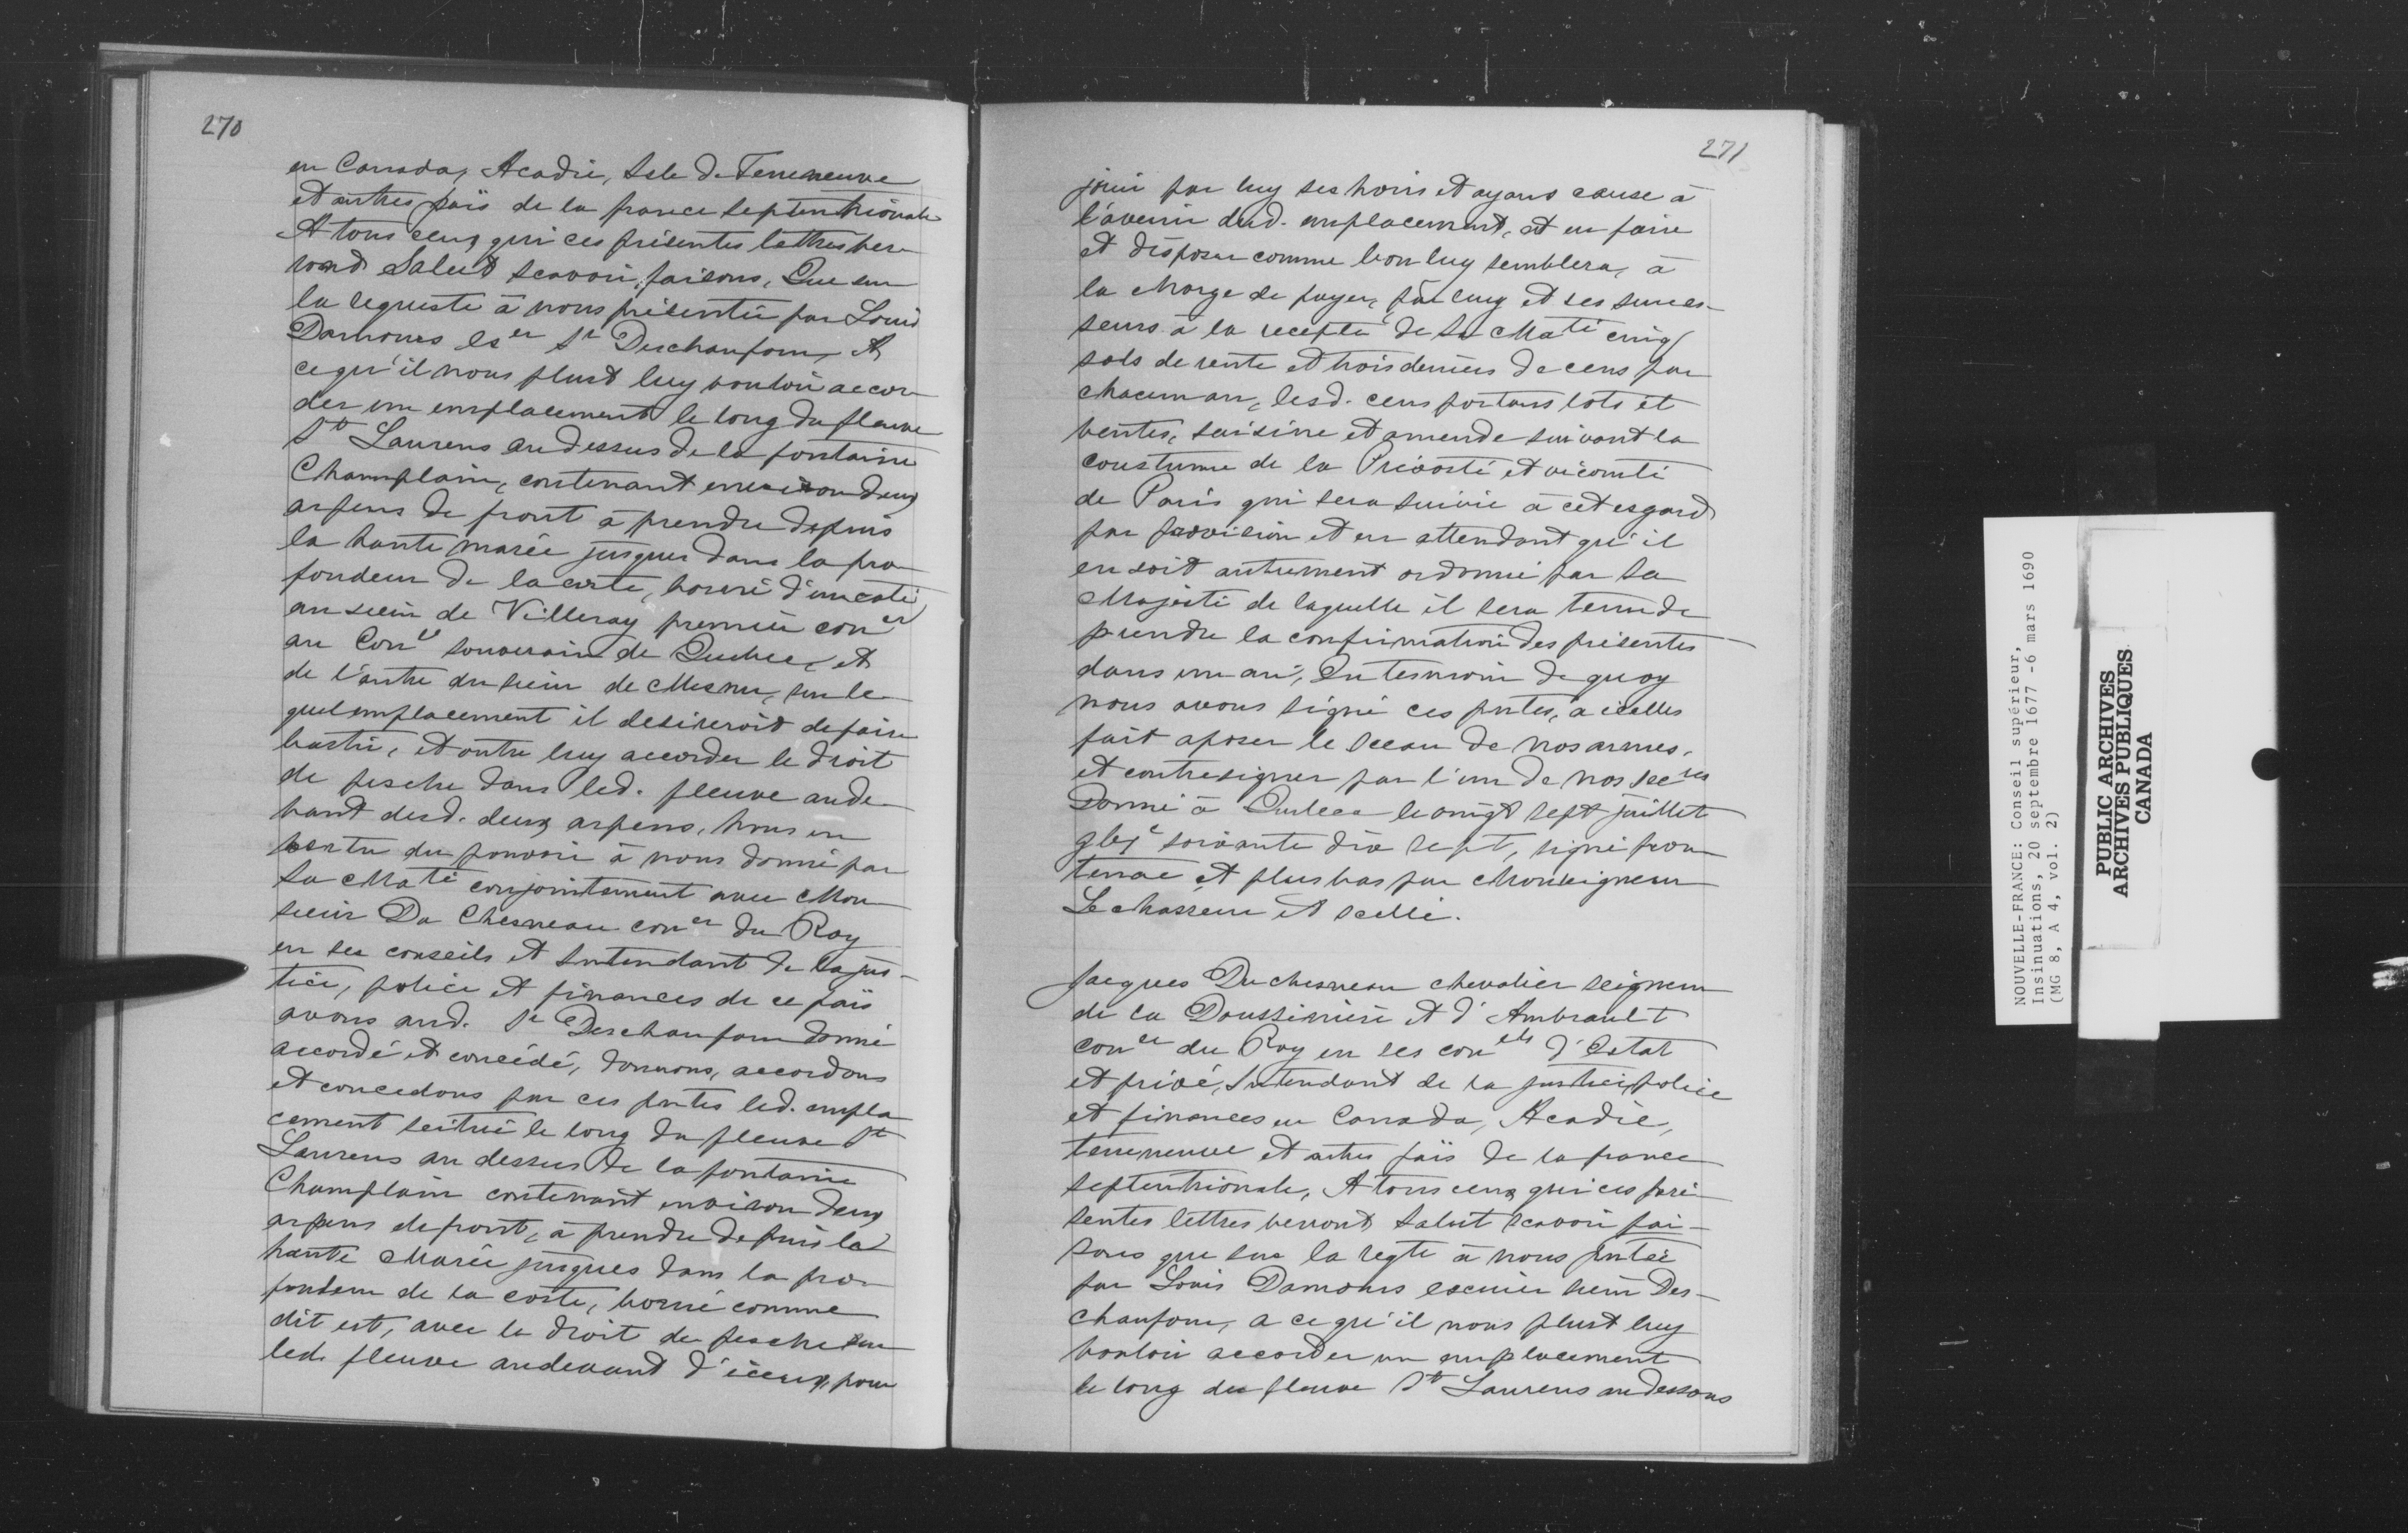 270
en Canada, Acadie, Isle de Terreneuve
et autres païs de la france septentrionale
A tous ceux qui ces présentes lettres ver-
ront Salut scavoir, faisons, Que sur
la requeste à nous présentée par Louis
Damours Eser Sr Deschaufour, A
ce qu'il nous plust luy vouloir accor-
der un emplacement le long du fleuve
St Laurens au dessus de la fontaine
Champlain, contenant environ deux
arpens de front à prendre depuis
la haute marée jusques dans la pro-
fondeur de la coste, borné d'un costé
au sieur de Villeray premier coner
au Conl souverain de Quebec, et
de l'autre du sieur de Mesnu, sur le-
quel emplacement il desireroit de faire
bastir, et outre luy accorder le droit
de pesche dans led. fleuve au de-
vant desd. deux arpens, nous en
vertu du pouvoir à nous donné par
Sa Maté conjointement avec Mon-
sieur Du Chesneau coner du Roy
en ses conseils et Intendant de la jus-
tice, police et finances de ce païs
avons aud. Sr Deschaufour donné
accordé et concédé, donnons, accordons
et concedons par ces pntes led. empla-
cement scitué le long du fleuve St
Laurens au dessus de la fontaine
Champlain contenant environ deux
arpens de front, à prendre depuis la
haute Marée jusques dans la pro-
fondeur de la coste, borné comme
dit est, avec le droit de pesche sur
led. fleuve audevant d'iceux, pour
271
jouir par luy ses hoirs et ayans cause à
l'avenir dud. emplacement, et en faire
et disposer comme bon luy semblera, à
la charge de payer, par luy et ses succes-
seurs à la recepte de Sa Maté cinq
sols de rente et trois deniers de cens par
chacun an, lesd. cens portans lots et
ventes, saisine et amende suivant la
coustume de la Prévosté et vicomté
de Paris qui sera suivie à cet esgard
par provision et en attendant qu'il
en soit autrement ordonné par Sa
Majesté de laquelle il sera tenu de
prendre la confirmation des présentes
dans un an, En tesmoin de quoy
nous avons signé ces pntes, à icelles
fait aposer le sceau de nos armes,
et contresigner par l'un de nos secres
Donné à Quebec le vingt sept juillet
gbic soixante dix sept, signé fron-
tenac et plus bas par Monseigneur
Le chasseur et scellé.
Jacques Duchesneau chevalier seigneur
de la Doussinière et d'Ambrault
coner du Roy en ses conels d'Estat
et privé, Intendant de la justice, police
et finances en Canada, Acadie,
terreneuve et autres païs de la france
septentrionale, A tous ceux qui ces pré-
sentes lettres verront Salut scavoir fai-
sons que sur la reqte à nous pntée
par Louis Damours escuier sieur Des-
chaufour, a ce qu'il nous plust luy
vouloir accorder un emplacement
le long du fleuve St Laurens au dessous
NOUVELLE-FRANCE: Conseil supérieur,
Insinuations, 20 septembre 1677 -6 mars 1690
(MG 8, A 4, vol. 2)
PUBLIC ARCHIVES
ARCHIVES PUBLIQUES
CANADA